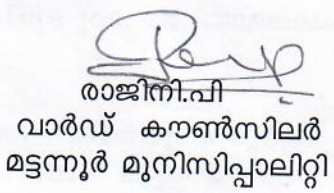 രാജിനി.പി
വാർഡ് കൗൺസിലർ
മട്ടന്നൂർ മുനിസിപ്പാലിറ്റി